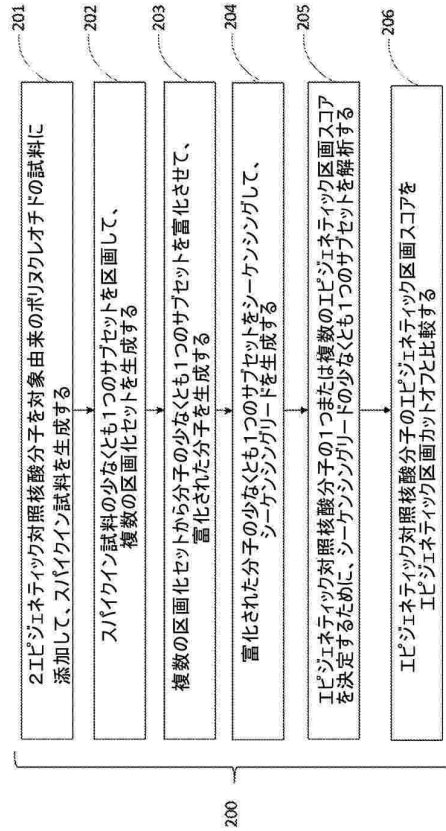 200
2エピジェネティック対照核酸分子を対象由来のポリヌクレオチドの試料に
添加して、スパイクイン試料を生成する
201
スパイクイン試料の少なくとも1つのサブセットを区画して、
複数の区画化セットを生成する
202
複数の区画化セットから分子の少なくとも1つのサブセットを富化させて、
富化された分子を生成する
203
富化された分子の少なくとも1つのサブセットをシーケンシングして、
シーケンシングリードを生成する
204
エピジェネティック対照核酸分子の1つまたは複数のエピジェネティック区画スコア
を決定するために、シーケンシングリードの少なくとも1つのサブセットを解析する
205
エピジェネティック対照核酸分子のエピジェネティック区画スコアを
エピジェネティック区画カットオフと比較する
206